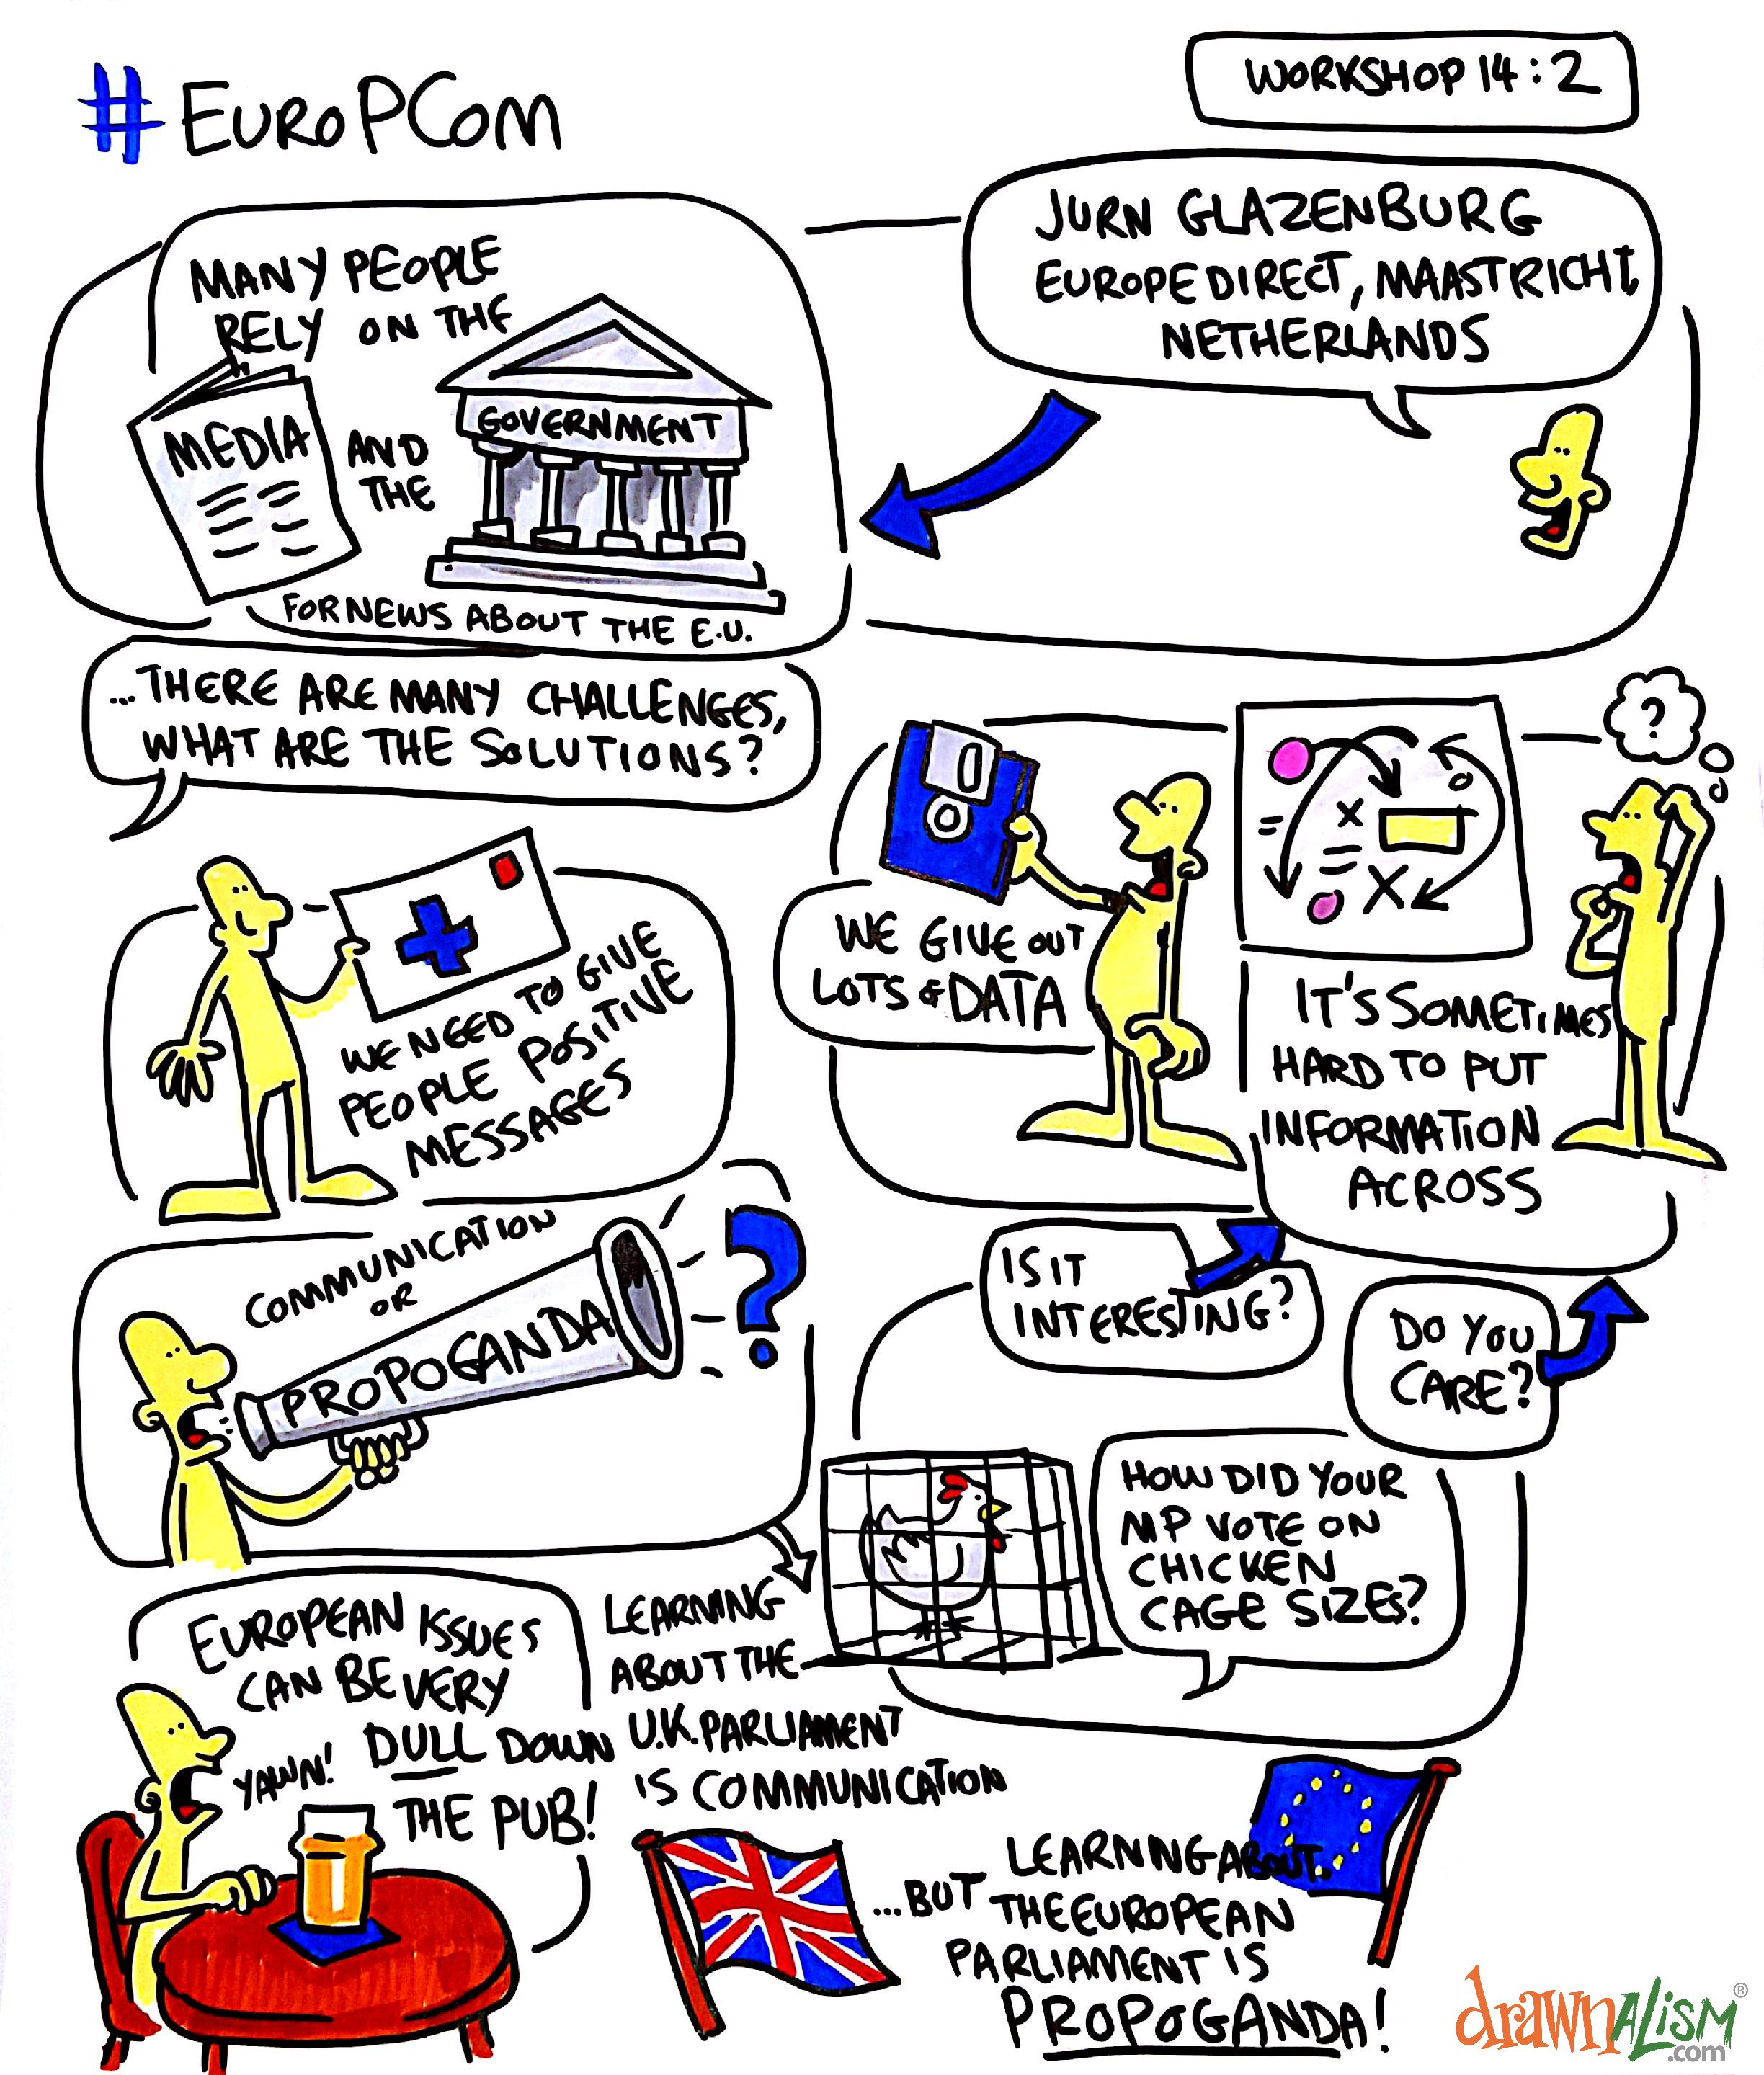 #EUROPCOM
WORKSHOP 14:2
JURN GLAZENBURG
EUROPE DIRECT, MAASTRICHT,
NETHERLANDS
MANY PEOPLE
RELY ON THE
MEDIA
AND
THE
GOVERNMENT
FOR NEWS ABOUT THE E.U.
...THERE ARE MANY CHALLENGES,
WHAT ARE THE SOLUTIONS?
WE NEED TO GIVE
PEOPLE POSITIVE
MESSAGES
WE GIVE OUT
LOTS OF DATA
?
= X
=
X
IT'S SOMETIMES
HARD TO PUT
INFORMATION
ACROSS
COMMUNICATION
OR
PROPOGANDA
?
IS IT
INTERESTING?
DO YOU
CARE?
HOW DID YOUR
MP VOTE ON
CHICKEN
CAGE SIZES?
EUROPEAN ISSUES
CAN BE VERY
DULL DOWN
THE PUB!
YAWN!
LEARNING
ABOUT THE
U.K. PARLIAMENT
IS COMMUNICATION
...BUT LEARNING ABOUT
THE EUROPEAN
PARLIAMENT IS
PROPOGANDA!
drawnalism®
.com